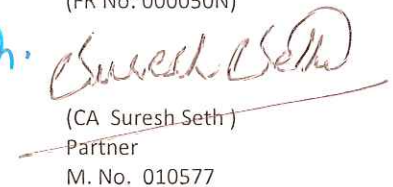 (FR No. 000050N)
h. Suresh Seth
(CA Suresh Seth )
Partner
M. No. 010577